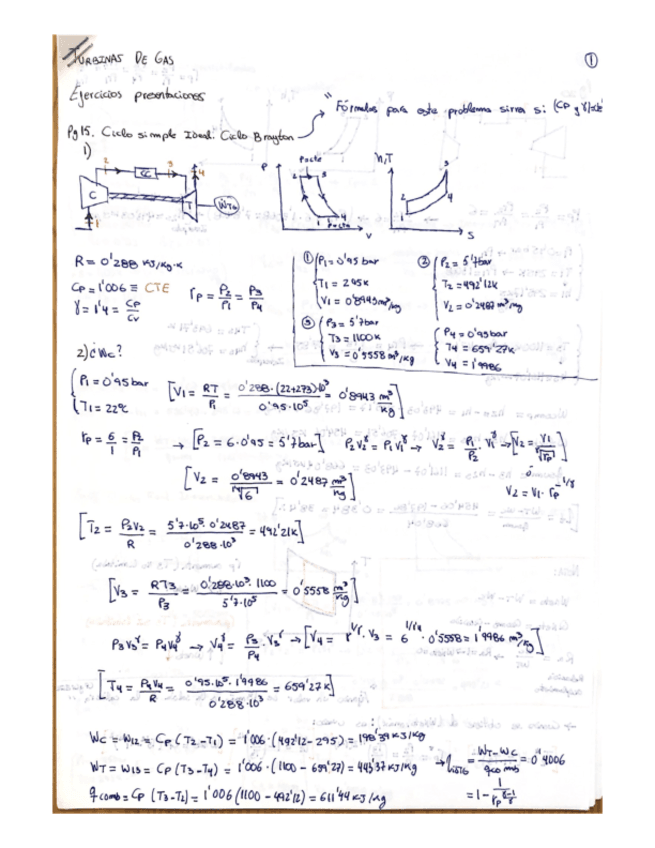 TURBINAS DE GAS
1
Ejercicios presentaciones
" Fórmulas para este problema sirva si: (Cp y γ)=cte
Pg 15. Ciclo simple Ideal. Ciclo Brayton
1)
2 CC 3 4
C T WTG
1
P P=cte 2 3 1 4 P=cte V
h,T 3 2 4 1 S
R = 0'288 KJ/kg·K
Cp = 1'006 ≡ CTE
γ = 1'4 = Cp/Cv
rp = P2/P1 = P3/P4
① P1 = 0'95 bar
T1 = 295K
V1 = 0'8943 m³/kg
② P2 = 5'7 bar
T2 = 492'12K
V2 = 0'2487 m³/kg
③ P3 = 5'7 bar
T3 = 1100K
V3 = 0'5558 m³/kg
P4 = 0'95 bar
T4 = 659'27K
V4 = 1'9986
2) ¿Wc?
P1 = 0'95 bar
T1 = 22ºC
[V1 = RT/P1 = 0'288·(22+273)·10³ / 0'95·10⁵ = 0'8943 m³/kg]
rp = 6/1 = P2/P1 → [P2 = 6·0'95 = 5'7 bar] P2V2^γ = P1V1^γ → V2^γ = P1/P2 · V1^γ → [V2 = V1/γ√rp]
[V2 = 0'8943/1'4√6 = 0'2487 m³/kg]
ó
V2 = V1·rp^-1/γ
[T2 = P2V2/R = 5'7·10⁵·0'2487 / 0'288·10³ = 492'21K]
[V3 = RT3/P3 = 0'288·10³·1100 / 5'7·10⁵ = 0'5558 m³/kg]
P3V3^γ = P4V4^γ → V4^γ = P3/P4 · V3^γ → [V4 = r^1/γ · V3 = 6^1/1'4 · 0'5558 = 1'9986 m³/kg]
[T4 = P4V4/R = 0'95·10⁵·1'9986 / 0'288·10³ = 659'27K]
WC = W12 = Cp (T2-T1) = 1'006·(492'12-295) = 198'39 KJ/kg
WT = W13 = Cp (T3-T4) = 1'006·(1100-659'27) = 443'37 KJ/kg → ηISTG = WT-WC / qcomb = 0'4006
q comb = Cp (T3-T2) = 1'006 (1100-492'12) = 611'44 KJ/kg
= 1 - 1/rp^γ-1/γ